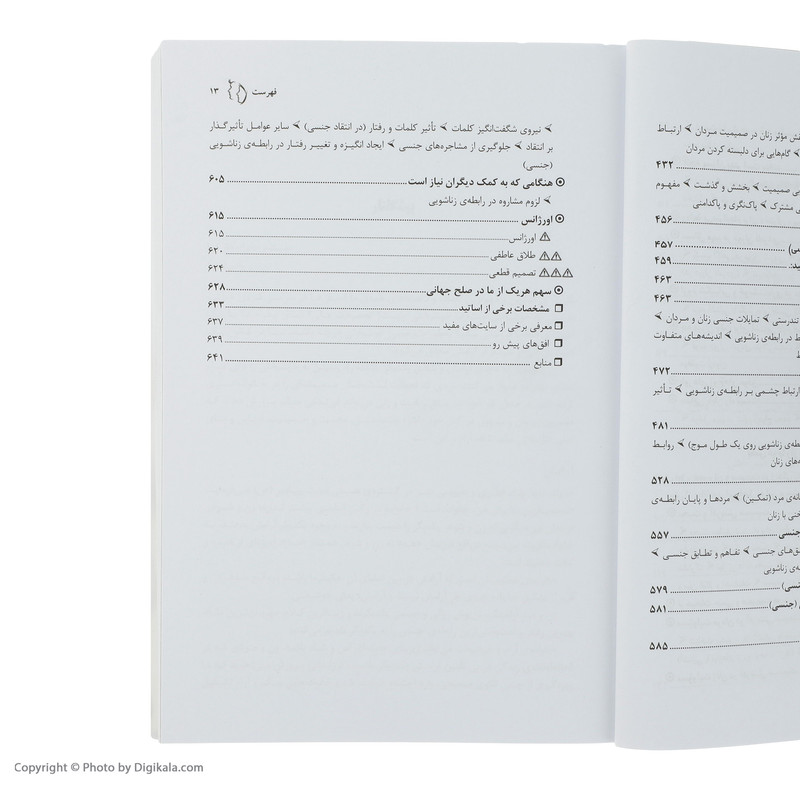 نقش مؤثر زنان در صمیمیت مردان ➤ ارتباط
➤ گام‌هایی برای دلبسته کردن مردان
۴۳۲
صمیمیت ➤ بخشش و گذشت ➤ مفهوم
مشترک ➤ پاک‌نگری و پاکدامنی
۴۵۶
۴۵۷
۴۵۹
۴۶۳
۴۶۳
تندرستی ➤ تمایلات جنسی زنان و مردان ➤
در رابطه‌ی زناشویی ➤ اندیشه‌های متفاوت
۴۷۲
ارتباط چشمی بر رابطه‌ی زناشویی ➤ تأثیر
۴۸۱
زناشویی روی یک طول موج) ➤ روابط
زنان
۵۲۸
مرد (تمکین) ➤ مردها و پایان رابطه‌ی
با زنان
جنسی ۵۵۷
جنسی ➤ تفاهم و تطابق جنسی ➤
زناشویی
۵۷۹
(جنسی) ۵۸۱
۵۸۵
فهرست ۱۳
➤ نیروی شگفت‌انگیز کلمات ➤ تأثیر کلمات و رفتار (در انتقاد جنسی) ➤ سایر عوامل تأثیرگذار
بر انتقاد ➤ جلوگیری از مشاجره‌های جنسی ➤ ایجاد انگیزه و تغییر رفتار در رابطه‌ی زناشویی
(جنسی)
هنگامی که به کمک دیگران نیاز است ۶۰۵
➤ لزوم مشاوره در رابطه‌ی زناشویی
اورژانس ۶۱۵
⚠ اورژانس ۶۱۵
⚠⚠ طلاق عاطفی ۶۲۰
⚠⚠⚠ تصمیم قطعی ۶۲۴
سهم هریک از ما در صلح جهانی ۶۲۸
❒ مشخصات برخی از اساتید ۶۳۳
❒ معرفی برخی از سایت‌های مفید ۶۳۷
❒ افق‌های پیش رو ۶۳۹
❒ منابع ۶۴۱
Copyright © Photo by Digikala.com